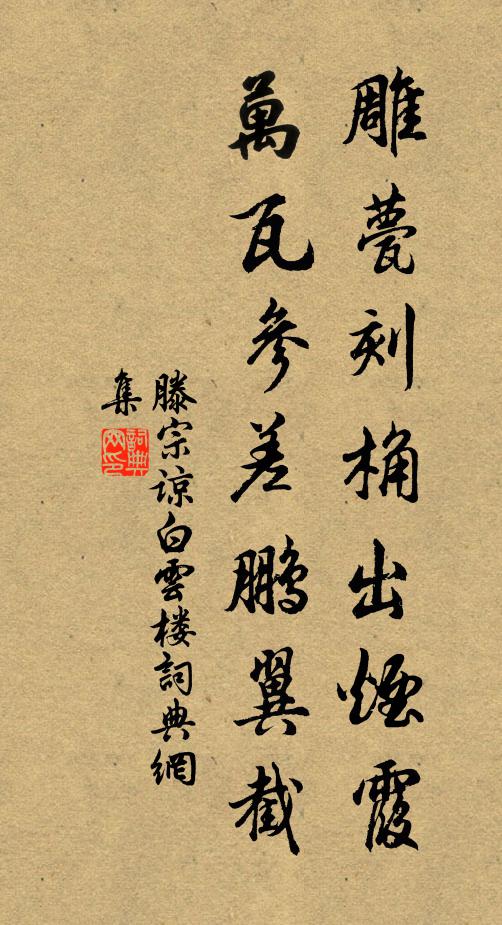 雕甍刻桷出煙霞
萬瓦參差鵬翼截
滕宗諒白雲楼詞典網
集
詞典網印